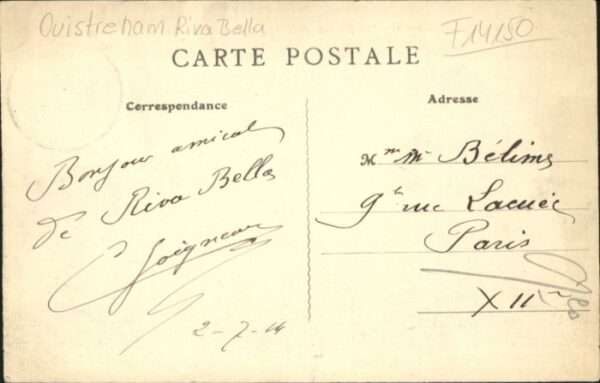 Ouistreham Riva Bella
F14150
CARTE POSTALE
Correspondance
Bonjour amical
de Riva Bella
2-7-14
Adresse
M Bélime
9 rue Lacuée
Paris
XII